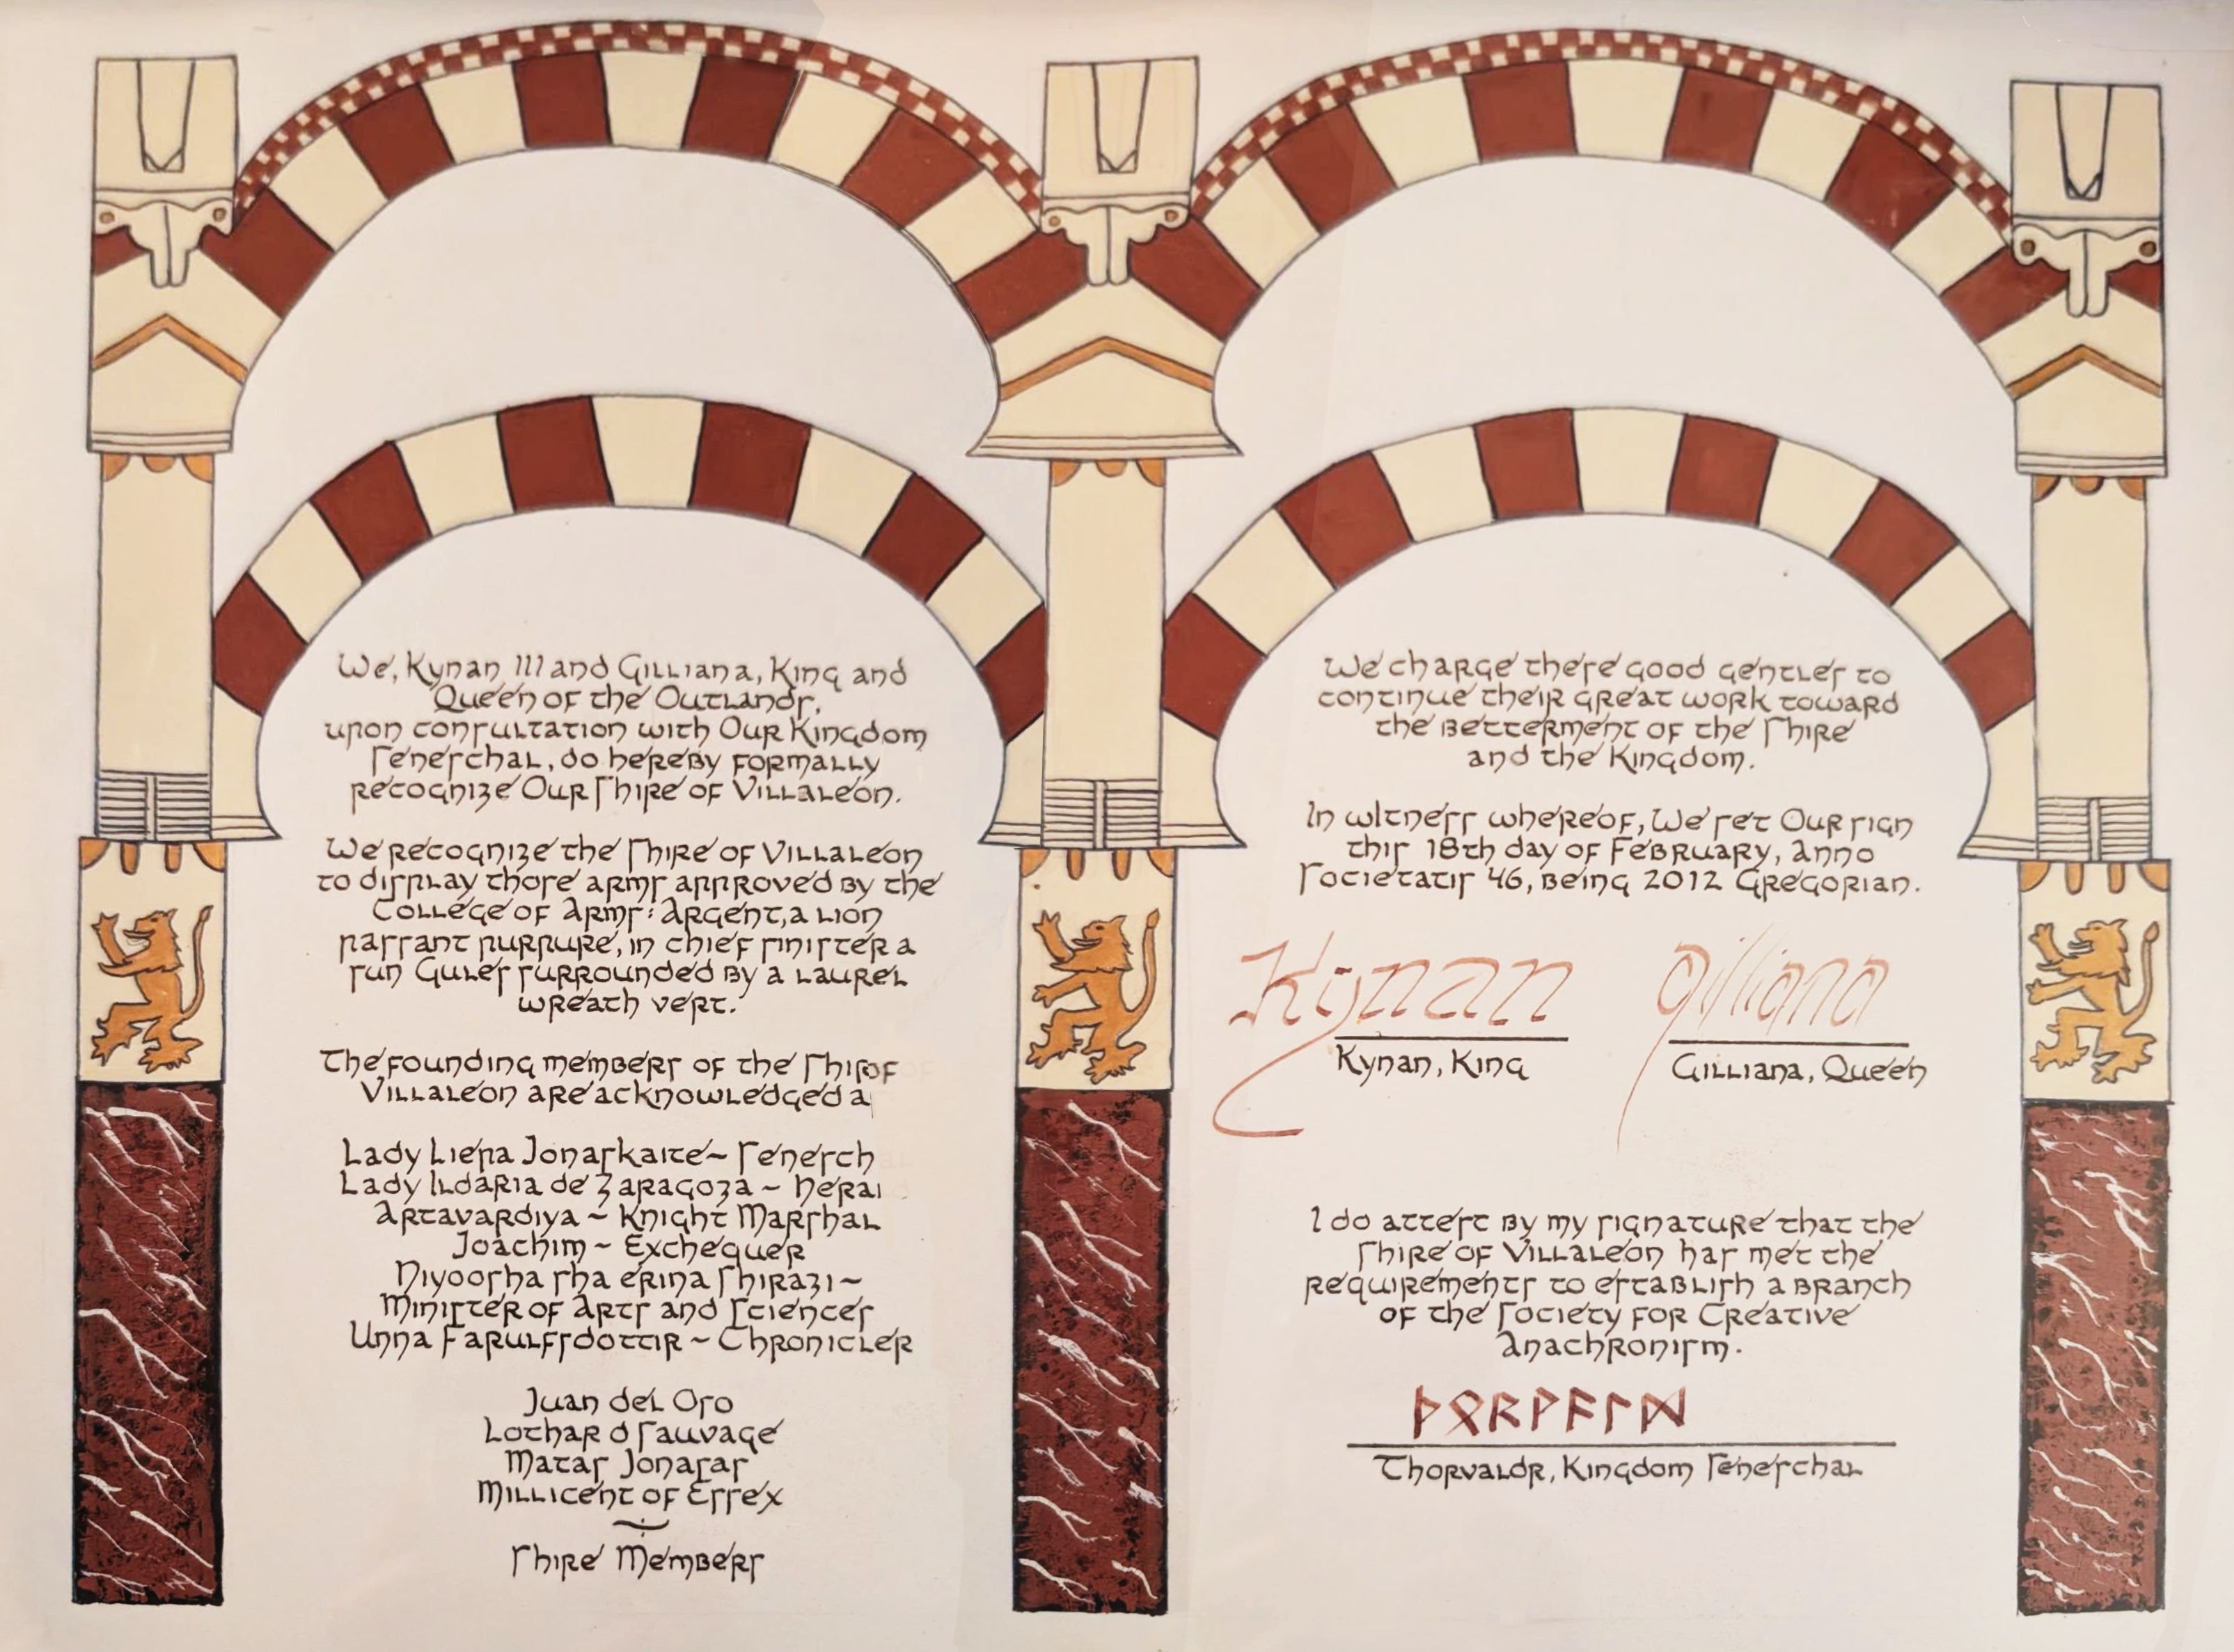 We, Kynan III and Gilliana, King and
Queen of the Outlands,
upon consultation with Our Kingdom
Seneschal, do hereby formally
recognize Our Shire of Villaleon.
We recognize the Shire of Villaleon
to display those arms approved by the
College of Arms: Argent, a lion
passant purpure, in chief sinister a
sun Gules surrounded by a laurel
wreath vert.
The founding members of the Shirof
Villaleon are acknowledged a
Lady Liepa Jonaskaite~ Senesch
Lady Ildaria de Zaragoza ~
Artavardiya ~ Knight Marshal
Joachim ~ Exchequer
Niyoosha sha erina Shirazi ~
Minister of Arts and Sciences
Unna Farulfsdottir ~ Chronicler
Juan del Oso
Lothar d Sauvage
Matas Jonasas
Millicent of Essex
Shire Members
We charge these good gentles to
continue their great work toward
the betterment of the Shire
and the Kingdom.
In witness whereof, We set Our sign
this 18th day of February, Anno
Societatis 46, being 2012 Gregorian.
Kynan Gilliana
Kynan, King Gilliana, Queen
I do attest by my signature that the
Shire of Villaleon has met the
requirements to establish a branch
of the Society for Creative
Anachronism.
ᚦᛟᚱᚹᚨᛚᛞ
Thorvaldr, Kingdom Seneschal